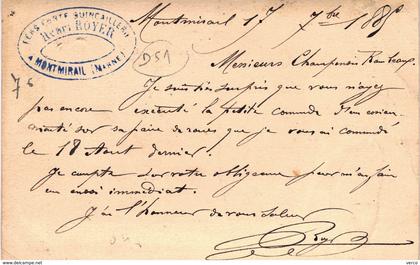 FERS FONTE QUINCAILLERIE
Henri ROYER
A MONTMIRAIL (MARNE)
Montmirail 17 7bre 188
D51
Messieurs Champenois Rambeaux
Je suis très surpris que vous n'ayez
pas encore exécuté la petite commde d'un
sur sa paire de roues que je vous ai commandé
le 18 Aout dernier.
Je compte sur votre obligeance pour m'en faire
un envoi immédiat.
J'ai l'honneur de vous saluer
Royer